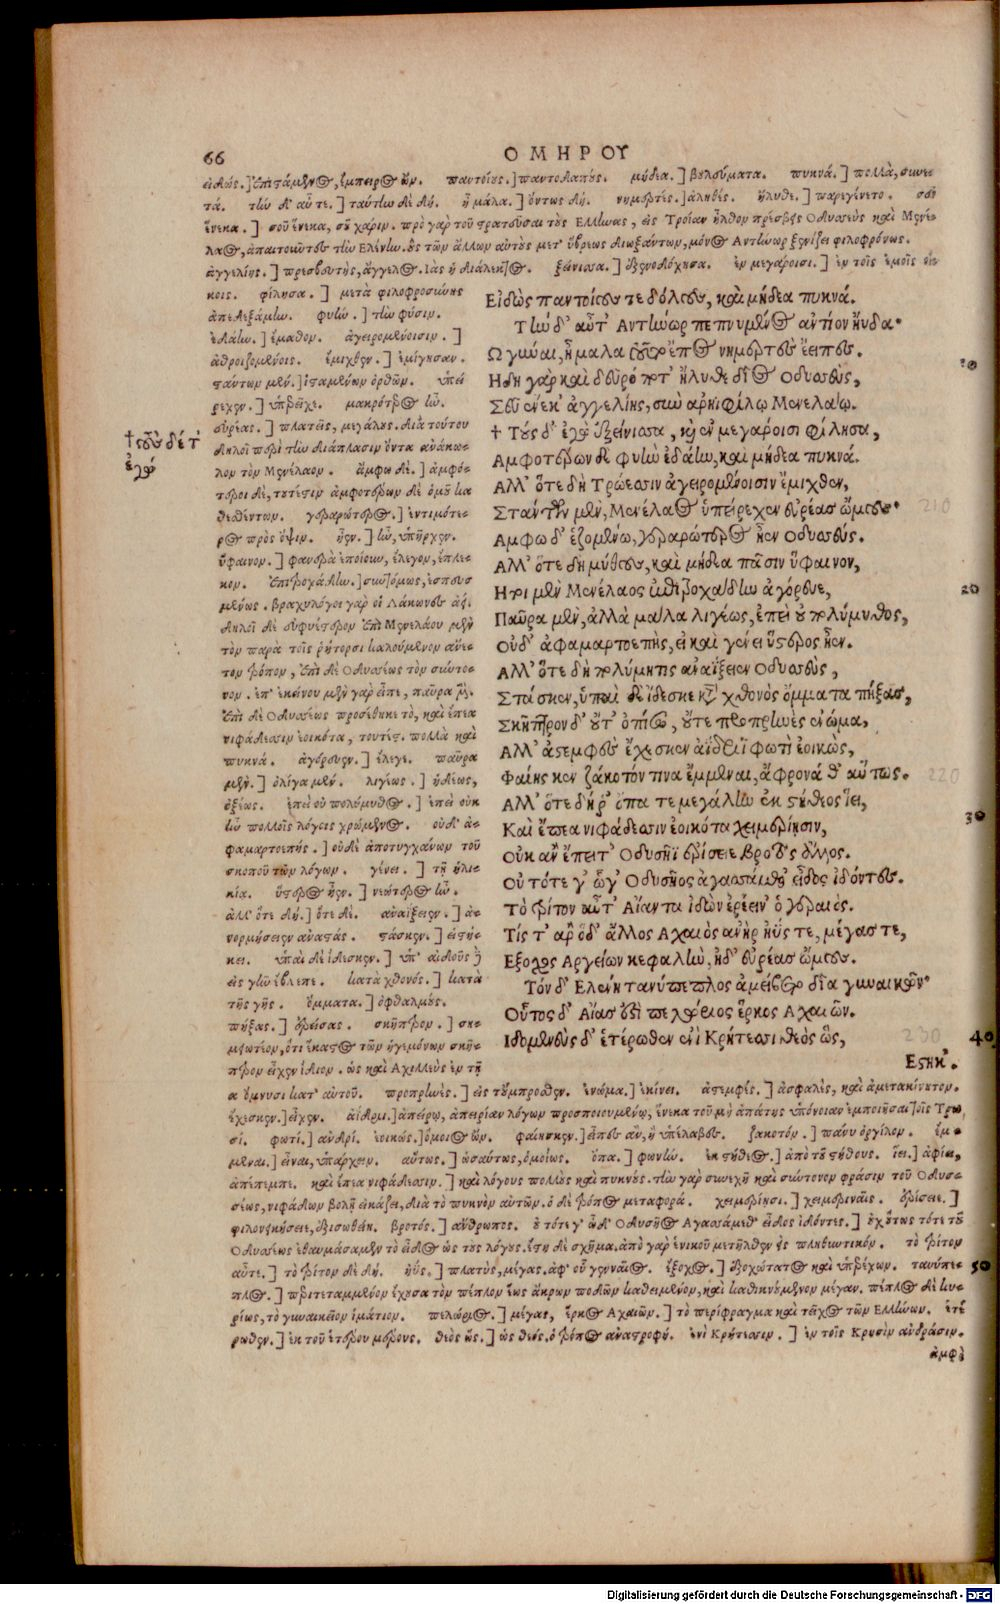 66
ΟΜΗΡΟΥ
εἰδώς.] ἐπιστάμενος, ἔμπειρος ὤν. παντοίους.] παντοδαπούς. μήδεα.] βουλεύματα. πυκνά.] πολλὰ, συνε-
τά. τὴν δ' αὖτε.] ταύτην δὲ δή. ἦ μάλα.] ὄντως δή. νημερτές.] ἀληθές. ἤλυθε.] παρεγένετο. σεῦ
ἕνεκα.] σοῦ ἕνεκα, σὴν χάριν. πρὸ γὰρ τοῦ στρατεῦσαι τοὺς Ελληνας, εἰς Τροίαν ἦλθον πρέσβεις Οδυσσεὺς καὶ Μενέ-
λαος, ἀπαιτοῦντες τὴν Ελένην. οὓς τῶν ἄλλων αὐτοὺς μετ' ὕβρεως διωξάντων, μόνος Αντήνωρ ξενίζει φιλοφρόνως.
ἀγγελίης.] πρεσβευτὴς, ἄγγελος. ἰὰς ἡ διάλεκτος. ξείνισσα.] ἐξενοδόχησα. ἐν μεγάροισι.] ἐν τοῖς ἐμοῖς οἴ-
κοις. φίλησα.] μετὰ φιλοφροσύνης
ἀπεδεξάμην. φυὴν.] τὴν φύσιν.
ἐδάην.] ἔμαθον. ἀγειρομένοισιν.]
ἀθροιζομένοις. ἔμιχθεν.] ἐμίγησαν.
στάντων μέν.] ἱσταμένων ὀρθῶν. ὑπεί
ρεχεν.] ὑπερεῖχε. μακρότερος ἦν.
εὐρέας.] πλατεῖς, μεγάλους. διὰ τούτου
δηλοῖ περὶ τὴν διάπλασιν ὄντα ἀνάκω-
λον τὸν Μενέλαον. ἄμφω δὲ.] ἀμφό-
τεροι δὲ, τουτέστιν ἀμφοτέρων δὲ ὁμοῦ κα
θεσθέντων. γεραρώτερος.] ἐντιμότε-
ρος πρὸς ὄψιν. ἦεν.] ἦν, ὑπῆρχεν.
ὕφαινον.] φανερὰ ἐποίουν, ἔλεγον, ἔπλε-
κον. ἐπιτροχάδην.] συντόμως, ἐσπευσ
μένως. βραχυλόγοι γὰρ οἱ Λάκωνες ἀεί.
δηλοῖ δὲ εὐφυέστερον ἐπὶ Μενελάου μὲν
τὸν παρὰ τοῖς ῥήτορσι καλούμενον ἄνε-
τον τρόπον, ἐπὶ δὲ Οδυσσέως τὸν σύντο-
νον. ἐπ' ἐκείνου μὲν γὰρ εἶπε, παῦρα μέν.
ἐπὶ δὲ Οδυσσέως προσέθηκε τὸ, καὶ ἔπεα
νιφάδεσσιν ἐοικότα, τουτέστι πολλὰ καὶ
πυκνά. ἀγόρευεν.] ἔλεγε. παῦρα
μὲν.] ὀλίγα μέν. λιγέως.] ἡδέως,
ὀξέως. ἐπεὶ οὐ πολύμυθος.] ἐπεὶ οὐκ
ἦν πολλοῖς λόγοις χρώμενος. οὐδ' ἀ-
φαμαρτοεπής.] οὐδὲ ἀποτυγχάνων τοῦ
σκοποῦ τῶν λόγων. γένει.] τῇ ἡλι-
κίᾳ. ὕστερος ἦεν.] νεώτερος ἦν.
ἀλλ' ὅτε δή.] ὅτε δὲ. ἀναΐξειεν.] ἀ-
νορμήσειεν ἀναστάς. στάσκεν.] εἱστή-
κει. ὑπαὶ δὲ ἴδεσκεν.] ὑπ' αἰδοῦς
εἰς γῆν ἔβλεπε. κατὰ χθονός.] κατὰ
τῆς γῆς. ὄμματα.] ὀφθαλμούς.
πήξας.] ἐρείσας. σκῆπτρον.] ση-
μειωτέον, ὅτι ἕκαστος τῶν ἡγεμόνων σκῆπ-
τρον εἶχεν ἴδιον. ὡς καὶ Αχιλλεὺς ἐν τῇ
† σεῦ δέ τ'
Εἰδὼς παντοίους τε δόλους, καὶ μήδεα πυκνά.
Τὴν δ' αὖτ' Αντήνωρ πεπνυμένος ἀντίον ηὔδα·
Ω γύναι, ἦ μάλα τοῦτο ἔπος νημερτὲς ἔειπες.
Ηδη γὰρ καὶ δεῦρό ποτ' ἤλυθε δῖος Οδυσσεὺς,
Σεῦ ἕνεκ' ἀγγελίης, σὺν ἀρηιφίλῳ Μενελάῳ.
† Τοὺς δ' ἐγὼ ἐξείνισσα, καὶ ἐν μεγάροισι φίλησα,
Αμφοτέρων δὲ φυὴν ἐδάην, καὶ μήδεα πυκνά.
Αλλ' ὅτε δὴ Τρώεσσιν ἀγειρομένοισιν ἔμιχθεν,
Στάντων μὲν, Μενέλαος ὑπείρεχεν εὐρέας ὤμους·
Αμφω δ' ἑζομένω, γεραρώτερος ἦεν Οδυσσεύς.
Αλλ' ὅτε δὴ μύθους, καὶ μήδεα πᾶσιν ὕφαινον,
Ητοι μὲν Μενέλαος ἐπιτροχάδην ἀγόρευε,
Παῦρα μὲν, ἀλλὰ μάλα λιγέως, ἐπεὶ οὐ πολύμυθος,
Οὐδ' ἀφαμαρτοεπὴς, εἰ καὶ γένει ὕστερος ἦεν.
Αλλ' ὅτε δὴ πολύμητις ἀναΐξειεν Οδυσσεὺς,
Στάσκεν, ὑπαὶ δὲ ἴδεσκε κατὰ χθονὸς ὄμματα πήξας,
Σκῆπτρον δ' οὔτ' ὀπίσω, οὔτε προπρηνὲς ἐνώμα,
Αλλ' ἀστεμφὲς ἔχεσκεν ἀΐδρεϊ φωτὶ ἐοικὼς,
Φαίης κεν ζάκοτόν τινα ἔμμεναι, ἄφρονά θ' αὔτως.
Αλλ' ὅτε δή ῥ' ὄπα τε μεγάλην ἐκ στήθεος ἵει,
Καὶ ἔπεα νιφάδεσσιν ἐοικότα χειμερίῃσιν,
Οὐκ ἂν ἔπειτ' Οδυσῆΐ ἐρίσσειε βροτὸς ἄλλος.
Οὐ τότε γ' ὧδ' Οδυσῆος ἀγασσάμεθ' εἶδος ἰδόντες.
Τὸ τρίτον αὖτ' Αἴαντα ἰδὼν ἐρέειν' ὁ γεραιός.
Τίς τ' ἄρ ὅδ' ἄλλος Αχαιὸς ἀνὴρ ἠΰς τε, μέγας τε,
Εξοχος Αργείων κεφαλὴν, ἠδ' εὐρέας ὤμους.
Τόν δ' Ελένη τανύπεπλος ἀμείβετο δῖα γυναικῶν·
Οὗτος δ' Αἴας ἐστὶ πελώριος ἕρκος Αχαιῶν.
Ιδομενεὺς δ' ἑτέρωθεν ἐνὶ Κρήτεσσι θεὸς ὣς,
Εστηκ'.
20
30
40
50
210
220
230
α ὄμνυσι κατ' αὐτοῦ. προπρηνὲς.] εἰς τοὔμπροσθεν. ἐνώμα.] ἐκίνει. ἀστεμφές.] ἀσφαλὲς, καὶ ἀμετακίνητον.
ἔχεσκεν.] εἶχεν. ἀΐδρει.] ἀπείρῳ, ἀπειρίαν λόγων προσποιουμένῳ, ἕνεκα τοῦ μὴ ἀπάτης ὑπόνοιαν ἐμποιῆσαι τοῖς Τρω
σί. φωτί.] ἀνδρί. ἐοικώς.] ὅμοιος ὤν. φαίησκεν.] εἶπες ἂν, ἢ ὑπέλαβες. ζάκοτόν.] πάνυ ὀργίλον. ἔμ-
μεναι.] εἶναι, ὑπάρχειν. αὔτως.] ὡσαύτως, ὁμοίως. ὄπα.] φωνήν. ἐκ στήθεος.] ἀπὸ τοῦ στήθους. ἵει.] ἀφίει,
ἀπέπεμπε. καὶ ἔπεα νιφάδεσσιν.] καὶ λόγους πολλοὺς καὶ πυκνούς. τὴν γὰρ συνεχῆ καὶ σύντονον φράσιν τοῦ Οδυσ-
σέως, νιφάδων βολῇ εἰκάζει, διὰ τὸ πυκνὸν αὐτῶν. ὁ δὲ τρόπος μεταφορά. χειμερίῃσι.] χειμεριναῖς. ἐρίσειε.]
φιλονεικήσειε, ἐξισωθείη. βροτός.] ἄνθρωπος. οὐ τότε γ' ὧδ' Οδυσῆος Αγασσάμεθ' εἶδος ἰδόντες.] οὐχ οὕτως τότε τοῦ
Οδυσσέως ἐθαυμάσαμεν τὸ εἶδος ὡς τοὺς λόγους. ἔστι δὲ σχῆμα. ἀπὸ γὰρ ἑνικοῦ μετῆλθεν εἰς πληθυντικόν. τὸ τρίτον
αὖτε.] τὸ τρίτον δὲ δή. ἠΰς.] πλατὺς, μέγας. ἀφ' οὗ γενναῖος. ἔξοχος.] ἐξοχώτατος καὶ ὑπερέχων. τανύπε-
πλος.] περιτεταμμένον ἔχουσα τὸν πέπλον ἕως ἄκρων ποδῶν καθειμένον, καὶ καθικνούμενον μέγαν. πέπλος δὲ κυ-
ρίως, τὸ γυναικεῖον ἱμάτιον. πελώριος.] μέγας, ἕρκος Αχαιῶν.] τὸ περίφραγμα καὶ τεῖχος τῶν Ελλήνων. ἑτέ
ρωθεν.] ἐκ τοῦ ἑτέρου μέρους. θεὸς ὥς.] ὡς θεός. ὁ τρόπος ἀναστροφή. ἐνὶ Κρήτεσσιν.] ἐν τοῖς Κρησὶν ἀνδράσιν.
ἀμφὶ
Digitalisierung gefördert durch die Deutsche Forschungsgemeinschaft - DFG